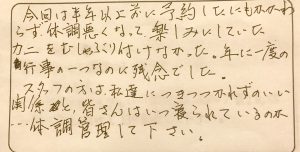 今回は半年以上前に予約したにもかかわ
らず体調悪くなって楽しみにしていた
カニをたしゃぶり付けなかった。年に一度の
行事の一つなのに残念でした。
スタッフの方は、私達につきっつかれずのいい
関係と、皆さんはいつ寝られているのか
…体調管理して下さい。